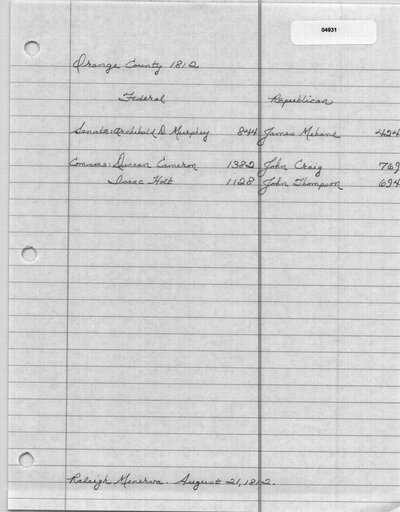 04931
Orange County 1812
Federal Republican
Senate: Archibald D Murphey 844 James Mebane 424
Commons: Duncan Cameron 1382 John Craig 769
Isaac Holt 1128 John Thompson 694
Raleigh Minerva. August 21, 1812.